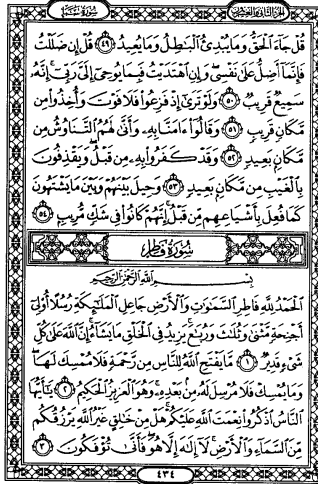 الجزء الثاني والعشرون
سورة سبأ
قُلْ جَآءَ ٱلْحَقُّ وَمَا يُبْدِئُ ٱلْبَٰطِلُ وَمَا يُعِيدُ ٤٩ قُلْ إِن ضَلَلْتُ
فَإِنَّمَآ أَضِلُّ عَلَىٰ نَفْسِى وَإِنِ ٱهْتَدَيْتُ فَبِمَا يُوحِىٓ إِلَىَّ رَبِّىٓ إِنَّهُۥ
سَمِيعٌ قَرِيبٌ ٥٠ وَلَوْ تَرَىٰٓ إِذْ فَزِعُوا۟ فَلَا فَوْتَ وَأُخِذُوا۟ مِن
مَّكَانٍ قَرِيبٍ ٥١ وَقَالُوٓا۟ ءَامَنَّا بِهِۦ وَأَنَّىٰ لَهُمُ ٱلتَّنَاوُشُ مِن
مَّكَانٍۭ بَعِيدٍ ٥٢ وَقَدْ كَفَرُوا۟ بِهِۦ مِن قَبْلُ وَيَقْذِفُونَ
بِٱلْغَيْبِ مِن مَّكَانٍۭ بَعِيدٍ ٥٣ وَحِيلَ بَيْنَهُمْ وَبَيْنَ مَا يَشْتَهُونَ
كَمَا فُعِلَ بِأَشْيَاعِهِم مِّن قَبْلُ إِنَّهُمْ كَانُوا۟ فِى شَكٍّ مُّرِيبٍۭ ٥٤
سورة فاطر
بِسْمِ ٱللَّهِ ٱلرَّحْمَٰنِ ٱلرَّحِيمِ
ٱلْحَمْدُ لِلَّهِ فَاطِرِ ٱلسَّمَٰوَٰتِ وَٱلْأَرْضِ جَاعِلِ ٱلْمَلَٰٓئِكَةِ رُسُلًا أُو۟لِىٓ
أَجْنِحَةٍ مَّثْنَىٰ وَثُلَٰثَ وَرُبَٰعَ يَزِيدُ فِى ٱلْخَلْقِ مَا يَشَآءُ إِنَّ ٱللَّهَ عَلَىٰ كُلِّ
شَىْءٍ قَدِيرٌ ١ مَّا يَفْتَحِ ٱللَّهُ لِلنَّاسِ مِن رَّحْمَةٍ فَلَا مُمْسِكَ لَهَا
وَمَا يُمْسِكْ فَلَا مُرْسِلَ لَهُۥ مِنۢ بَعْدِهِۦ وَهُوَ ٱلْعَزِيزُ ٱلْحَكِيمُ ٢ يَٰٓأَيُّهَا
ٱلنَّاسُ ٱذْكُرُوا۟ نِعْمَتَ ٱللَّهِ عَلَيْكُمْ هَلْ مِنْ خَٰلِقٍ غَيْرُ ٱللَّهِ يَرْزُقُكُم
مِّنَ ٱلسَّمَآءِ وَٱلْأَرْضِ لَآ إِلَٰهَ إِلَّا هُوَ فَأَنَّىٰ تُؤْفَكُونَ ٣
٤٣٤